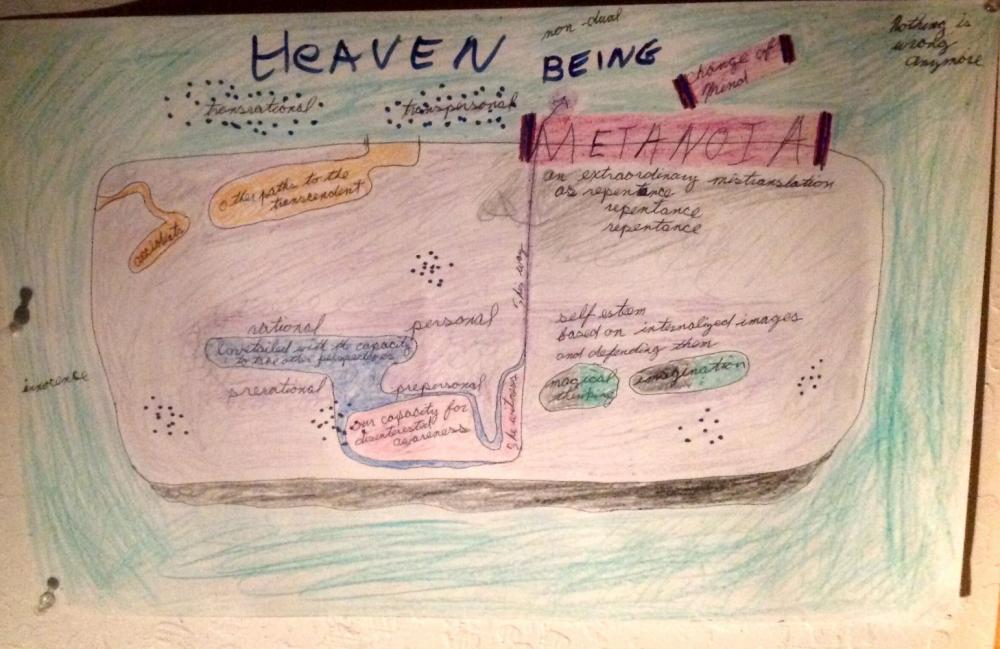 non-dual
HEAVEN
BEING
Nothing is
wrong
anymore
Change of
Mind
transrational
transpersonal
METANOIA
an extraordinary mistranslation
as repentance
repentance
repentance
other paths to the
transcendent
accidents
The way
rational
personal
Dovetailed with the capacity
to take other perspectives
prerational
prepersonal
our capacity for
disinterested
awareness
The witness
self esteem
based on internalized images
and defending them
magical
thinking
imagination
innocence